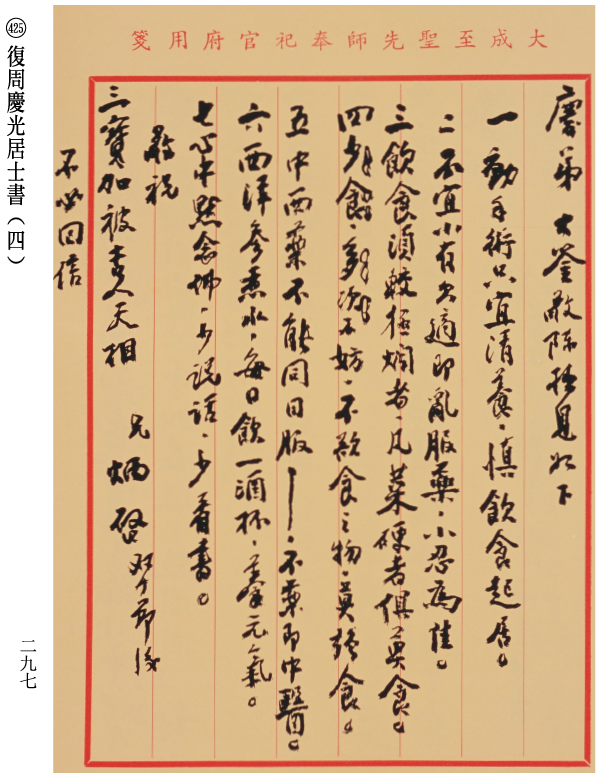 大成至聖先師奉祀官府用箋
慶弟大鑒敬陳拙見如下
一 動手術只宜清養、慎飲食起居。
二 不宜小有欠適即亂服藥、小忍為佳。
三 飲食須較極爛者、凡菜硬者俱莫食。
四 不妨、不欲食之物、莫強食。
五 中西藥不能同日服——不藥即中醫。
六 西洋參煮水、每日飲一酒杯、養元氣。
七 心中默念佛、少說話、少看書。
敬祝
三寶加被吉人天相
兄 炳 啓 双十節後
不必回信
425 復周慶光居士書(四)
二九七